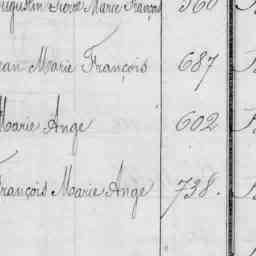 Augustin Pierre Marie François 560
Jean Marie François 687
Marie Ange 602
François Marie Ange 738.